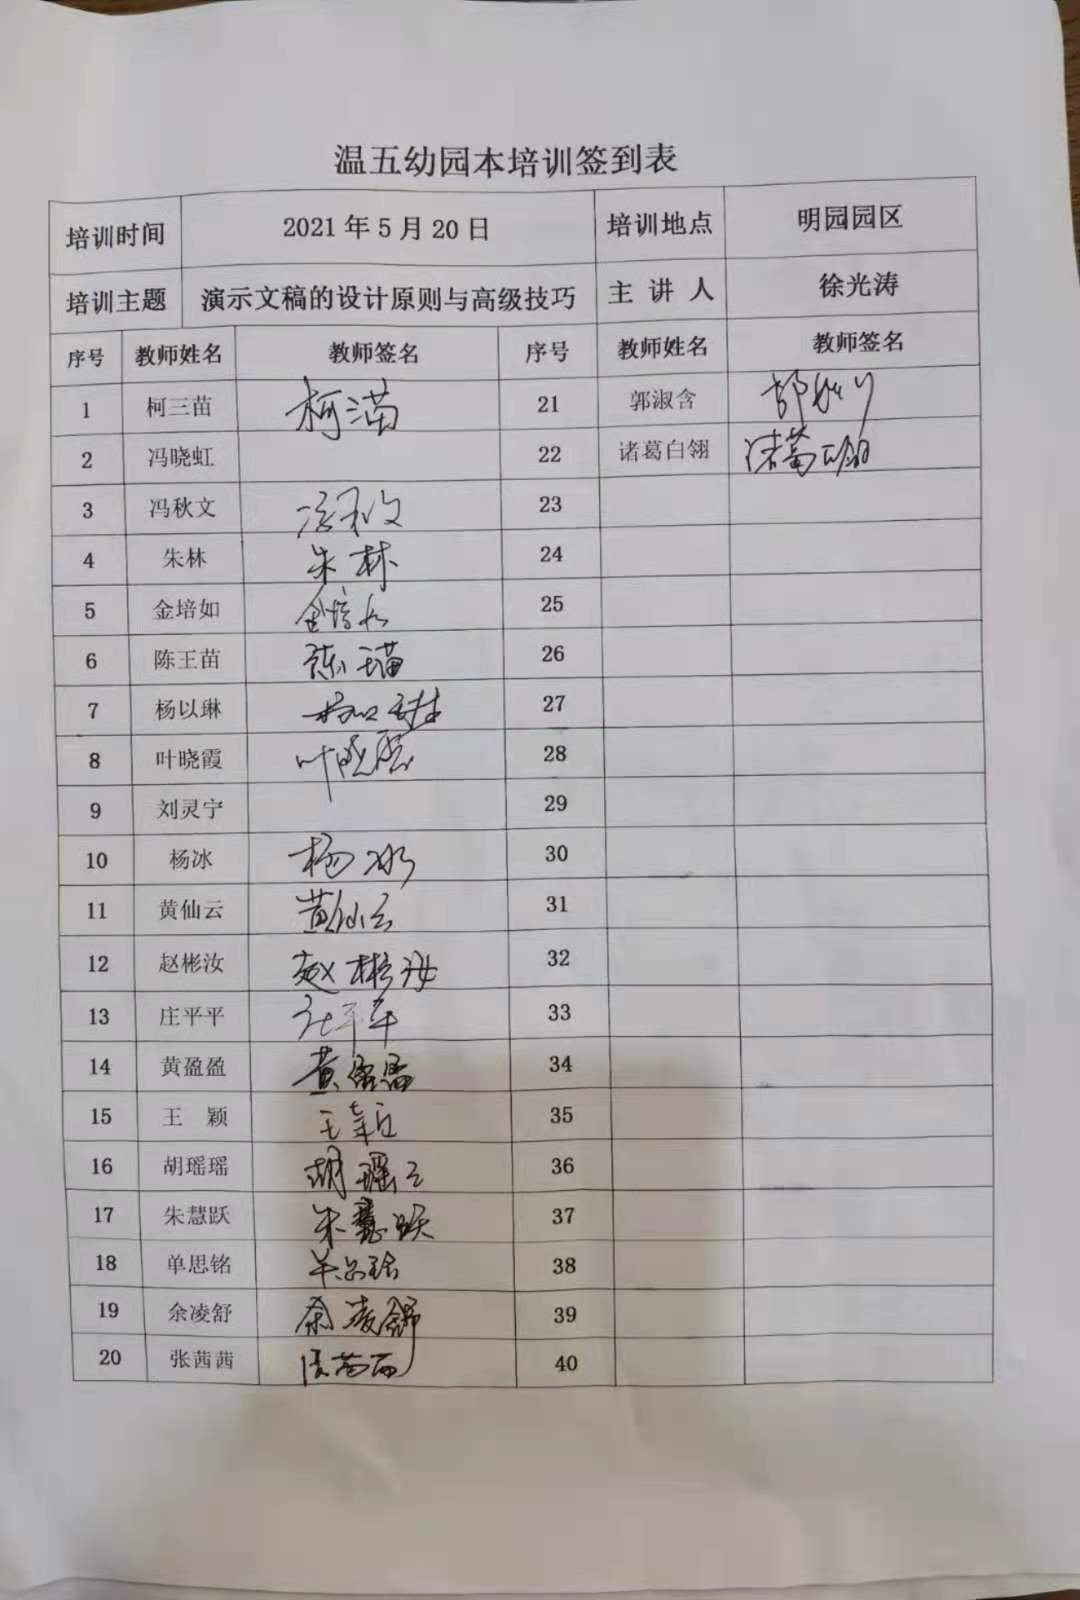 温五幼园本培训签到表
培训时间 2021年5月20日 培训地点 明园园区
培训主题 演示文稿的设计原则与高级技巧 主讲人 徐光涛
序号 教师姓名 教师签名 序号 教师姓名 教师签名
1 柯三苗 柯三苗 21 郭淑含
2 冯晓虹 22 诸葛白翎 诸葛白翎
3 冯秋文 冯秋文 23
4 朱林 朱林 24
5 金培如 金培如 25
6 陈王苗 陈王苗 26
7 杨以琳 杨以琳 27
8 叶晓霞 叶晓霞 28
9 刘灵宁 29
10 杨冰 杨冰 30
11 黄仙云 黄仙云 31
12 赵彬汝 赵彬汝 32
13 庄平平 庄平平 33
14 黄盈盈 黄盈盈 34
15 王颖 王颖 35
16 胡瑶瑶 胡瑶瑶 36
17 朱慧跃 朱慧跃 37
18 单思铭 单思铭 38
19 余凌舒 余凌舒 39
20 张茜茜 张茜茜 40